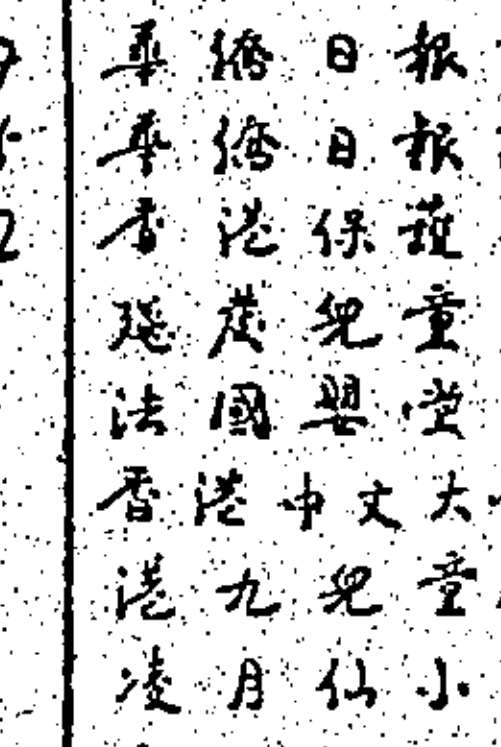 華僑日報
華僑日報
香港保護
瑶茂兒童
法國嬰堂
香港中文大
港九兒童
凌月仙小